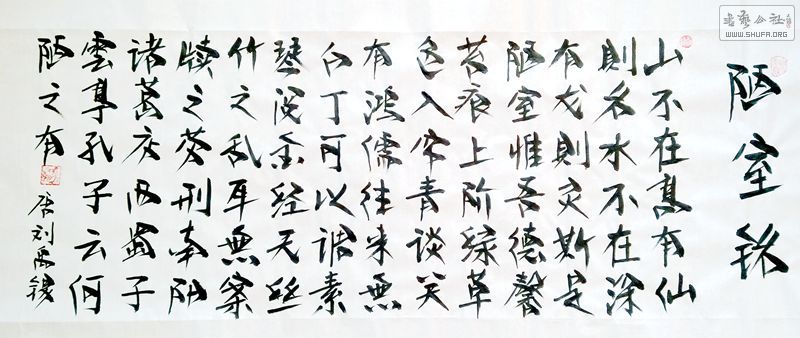 陋室铭
山不在高有仙
則名水不在深
有龙則灵斯是
陋室惟吾德馨
苔痕上阶綠草
色入帘青谈笑
有鸿儒往来無
白丁可以调素
琴阅金经无丝
竹之乱耳無案
牍之劳形南阳
诸葛庐西蜀子
雲亭孔子云何
陋之有
唐刘禹锡
书艺公社
WWW.SHUFA.ORG